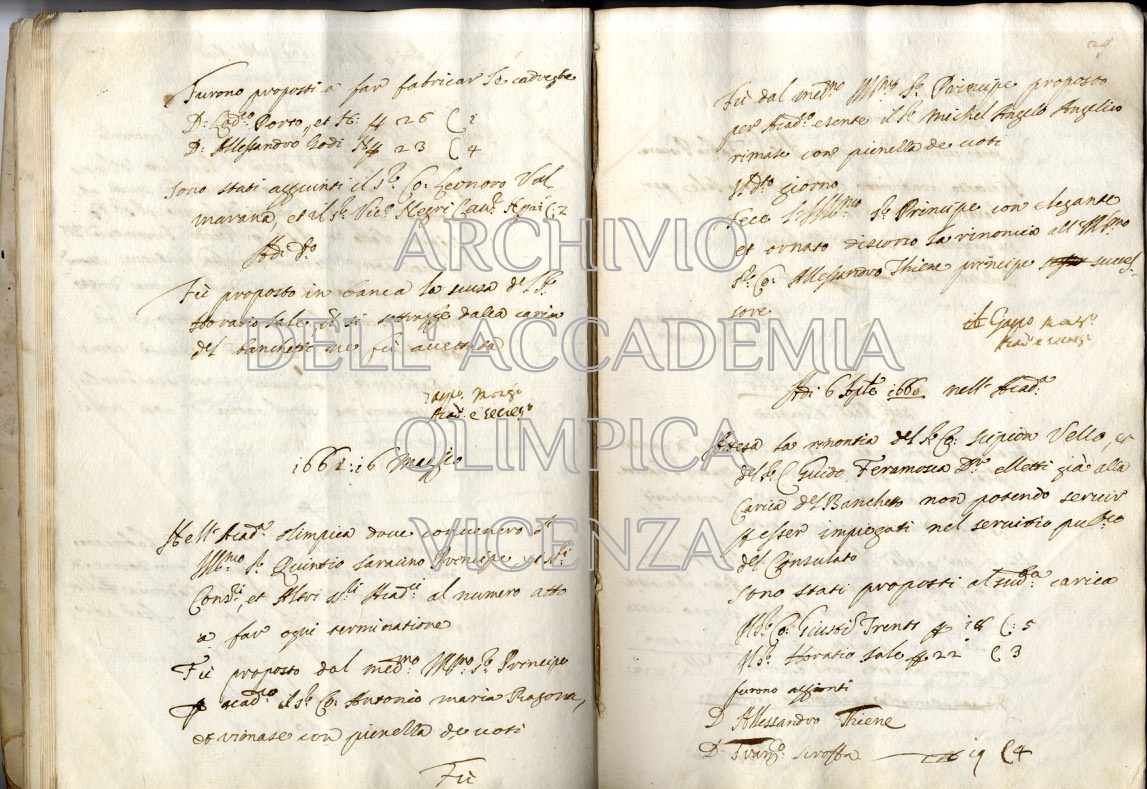 Furono proposti à far fabricar le cadreghe
D: Porto, et H: 26 C 2
D: Allessandro Godi 23 C 4
sono stati aggiunti il Sr Co: Leonoro Val
marana, et il Sr
Adi do
Fù proposto in banca la scusa del Sr
Horatio Sale, si dalla carica
del banchetto ne fù accettada
Acad. e Secreo
1661: 16 Maggio
Nell' Acada olimpica dove convenero l'
Illmo Sr Quintio Saraceno Prencipe, et Sri
et Altri Acadci al numero atto
a far ogni terminatione
Fù proposto dal medmo Illmo Sr Prencipe
p acadco il Sr Co: Antonio maria Ragona,
et rimase con pienella de voti
Fù
Fù dal medmo Illmo Sr Principe proposto
per Acado esente il Sr Michel Angelo Angelico
rimase con pienella de voti
giorno
Fece l'Illmo Sr Principe con elegante
et ornato discorso la rinoncia all' Illmo
Sr Co: Allessandro Thiene principe succes
sore
Acado e secreo
Adi 6 1660 nell' Acada
Attesa la renontia del Sr Co: Scipion Vello, &
del Sr C. Guido Feramosca elletti già alla
Carica del Banchetto non potendo servir
p esser impiegati nel servitio publico
del Consulato
sono stati proposti al sudta carica
Il Sr Co: Trenti 18 C: 5
Il Sr Horatio Sale 22 C 3
furono aggionti
D Allessandro Thiene
D: Franco scroffa 19 C 4
ARCHIVIO
DELL'ACCADEMIA
OLIMPICA
VICENZA